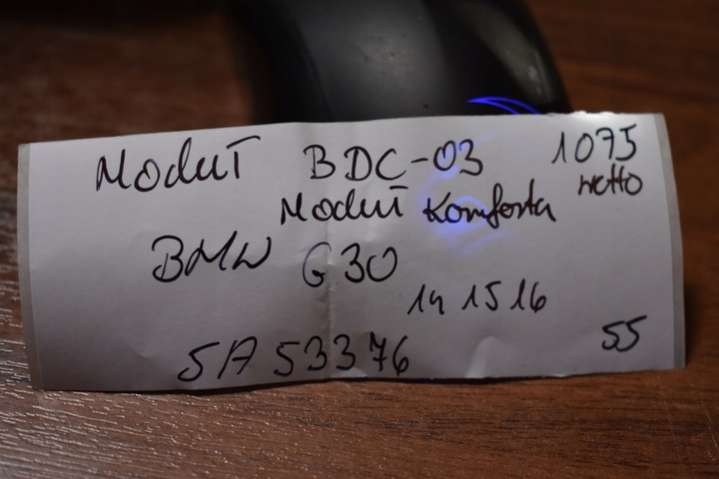 Moduł BDC-03 1075
Moduł Komforta netto
BMW G30
14 15 16
5A53376 55